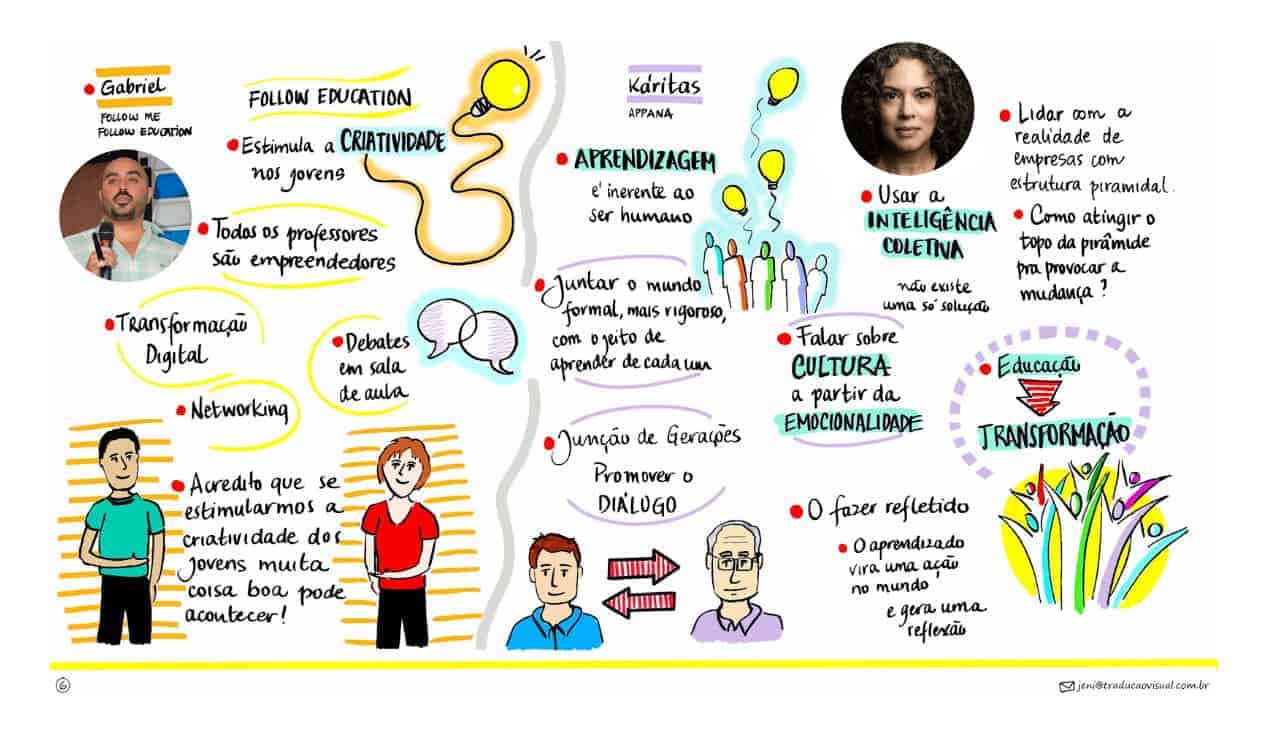 Gabriel
FOLLOW ME
FOLLOW EDUCATION
FOLLOW EDUCATION
Estimula a CRIATIVIDADE
nos jovens
Todos os professores
são empreendedores
Transformação
Digital
Debates
em sala
de aula
Networking
Acredito que se
estimularmos a
criatividade dos
jovens muita
coisa boa pode
acontecer!
Káritas
APPANA
APRENDIZAGEM
é inerente ao
ser humano
Juntar o mundo
formal, mais rigoroso,
com o jeito de
aprender de cada um
Junção de Gerações
Promover o
DIÁLOGO
Usar a
INTELIGÊNCIA
COLETIVA
não existe
uma só solução
Falar sobre
CULTURA
a partir da
EMOCIONALIDADE
Lidar com a
realidade de
empresas com
estrutura piramidal.
Como atingir o
topo da pirâmide
pra provocar a
mudança?
Educação
TRANSFORMAÇÃO
O fazer refletido
O aprendizado
vira uma ação
no mundo
e gera uma
reflexão
6
jeni@traducaovisual.com.br